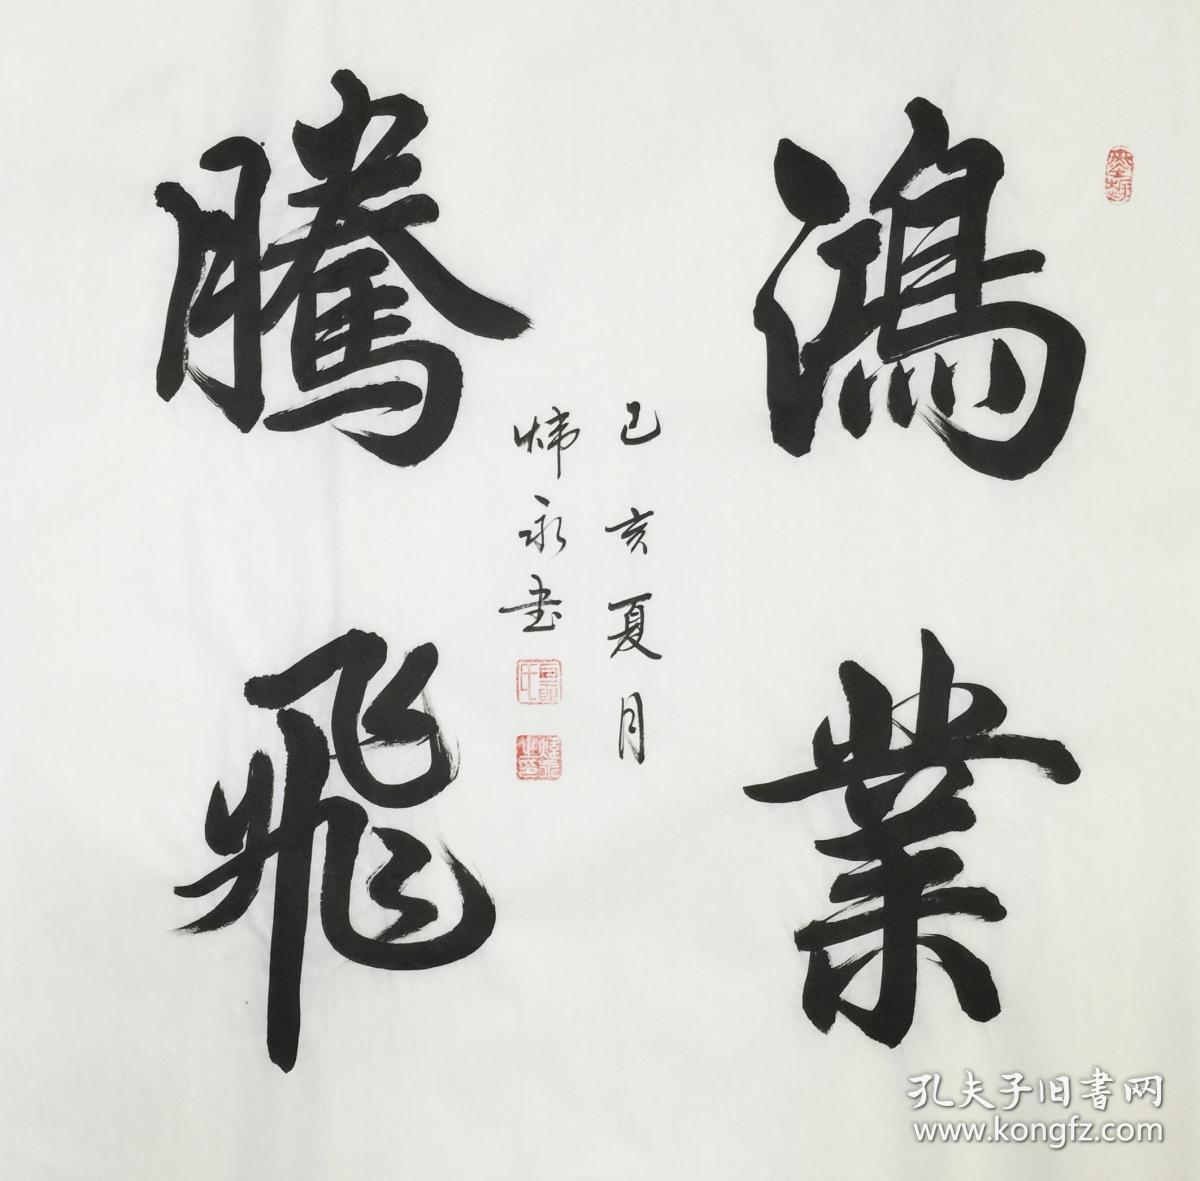 鴻業
騰飛
己亥夏月
炜永书
孔夫子旧書网
www.kongfz.com